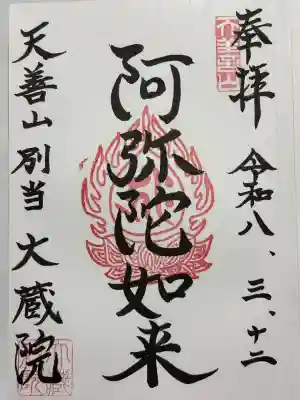 奉拝
令和八、三、十二
阿弥陀如来
天善山別当大蔵院